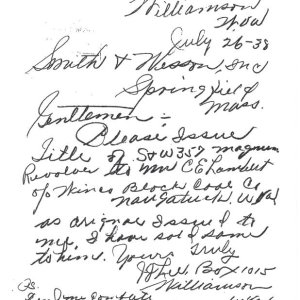 Williamson
W.Va
July 26-38
Smith & Wesson, Inc
Springfield
Mass.
Gentlemen:
Please Issue
Title of S&W 357 magnum
Revolver to mr C E Lambert
of Block Coal Co
naugatuck, W.Va
as orignal Issued to
me, I have sold same
to him. Yours Truly
Box 1015
Williamson
Ps.